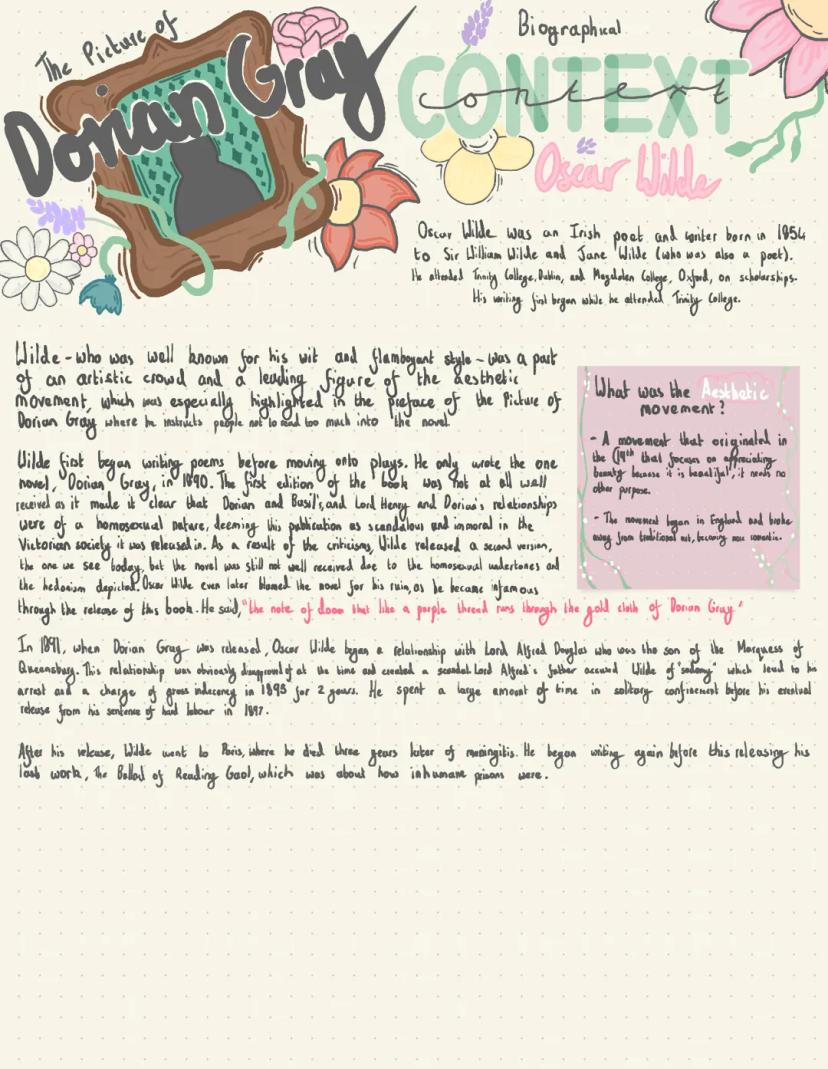 The Picture of
Dorian Gray
Biographical
CONTEXT
context
Oscar Wilde
Oscar Wilde was an Irish poet and writer born in 1854
to Sir William Wilde and Jane Wilde (who was also a poet).
He attended Trinity College, Dublin, and Magdalen College, Oxford, on scholarships.
His writing first began while he attended Trinity College.
Wilde - who was well known for his wit and flamboyant style - was a part
of an artistic crowd and a leading figure of the aesthetic
movement, which was especially highlighted in the preface of the Picture of
Dorian Gray where he instructs people not to read too much into the novel.
Wilde first began writing poems before moving onto plays. He only wrote the one
novel, Dorian Gray, in 1890. The first edition of the book was not at all well
received as it made it clear that Dorian and Basil's, and Lord Henry and Dorian's relationships
were of a homosexual nature, deeming this publication as scandalous and immoral in the
Victorian society it was released in. As a result of the criticisms, Wilde released a second version,
the one we see today, but the novel was still not well received due to the homosexual undertones and
the hedonism depicted. Oscar Wilde even later blamed the novel for his ruin, as he became infamous
through the release of this book. He said, "the note of doom that like a purple thread runs through the gold cloth of Dorian Gray"
What was the Aesthetic
movement?
- A movement that originated in
the C19th that focuses on appreciating
beauty because it is beautiful, it needs no
other purpose.
- The movement began in England and broke
away from traditional art, becoming more romantic.
In 1891, when Dorian Gray was released, Oscar Wilde began a relationship with Lord Alfred Douglas who was the son of the Marquess of
Queensbury. This relationship was obviously disapproved of at the time and created a scandal. Lord Alfred's father accused Wilde of "sodomy" which lead to his
arrest and a charge of gross indecency in 1895 for 2 years. He spent a large amount of time in solitary confinement before his eventual
release from his sentence of hard labour in 1897.
After his release, Wilde went to Paris, where he died three years later of meningitis. He began writing again before this releasing his
last work, the Ballad of Reading Gaol, which was about how inhumane prisons were.